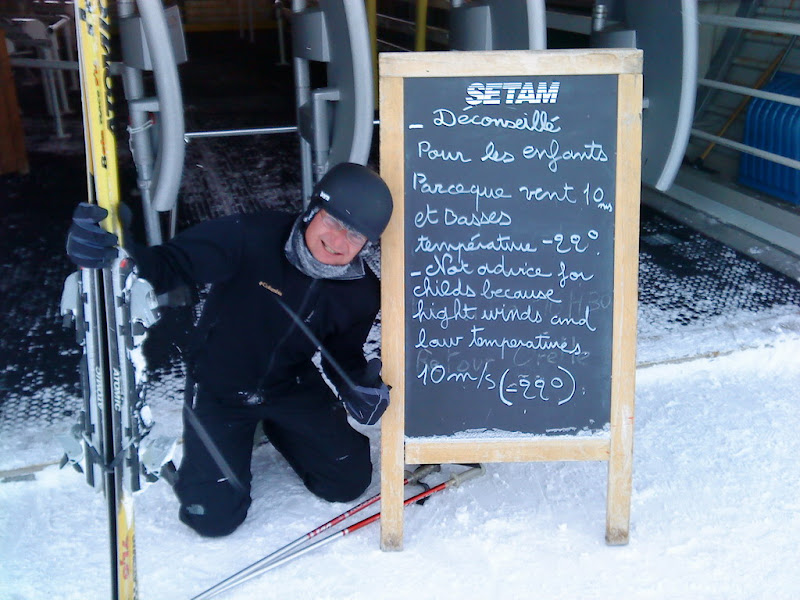 SETAM
- Déconseillé
Pour les enfants
Parceque vent 10 ms
et Basses
température -22°
- Not advice for
childs because
hight winds and
low temperatures
10 m/s (-22°)
Columbia
ATOMIC